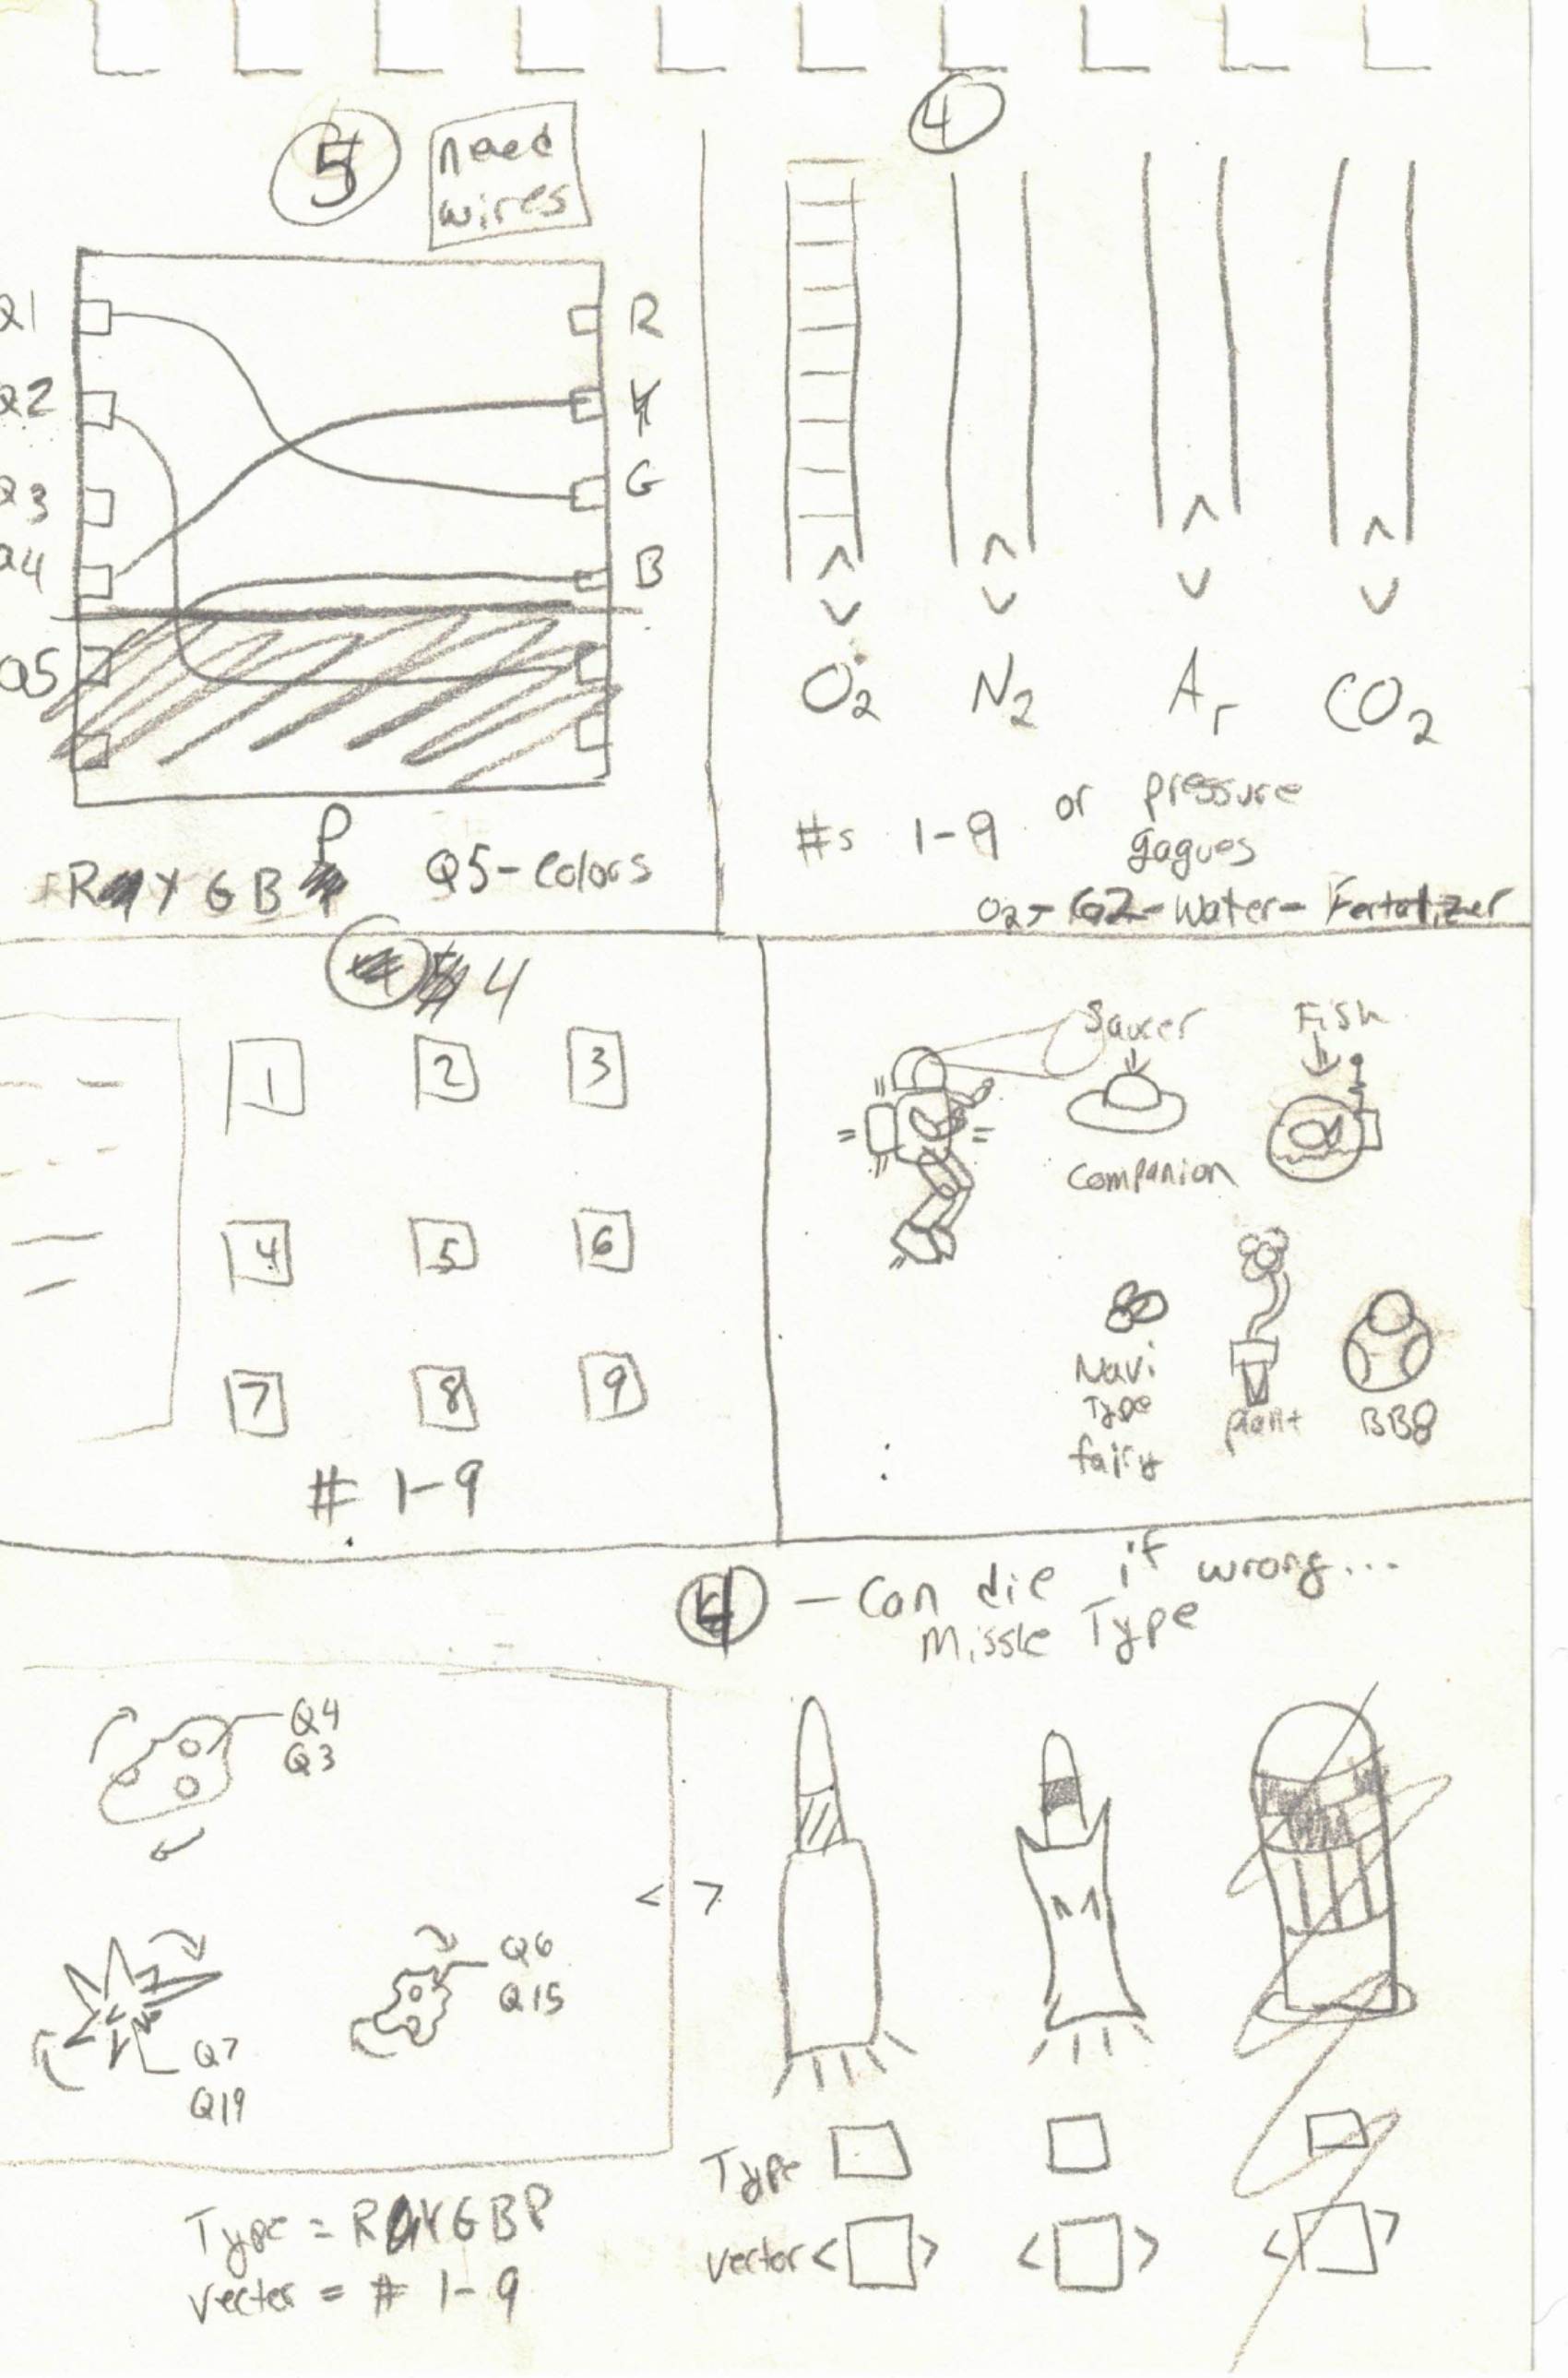 5
need
wires
4
Q1
R
Q2
Y
Q3
G
Q4
B
Q5
O2 N2 Ar CO2
P
R Y G B
Q5-Colors
#s 1-9 or pressure
gagues
O2- G2-Water- Fertalizer
4
1 2 3
4 5 6
7 8 9
# 1-9
Saucer
Fish
Companion
Navi
Type
fairy
plant
BB8
4 - Can die if wrong...
Missle Type
Q4
Q3
< >
Q6
Q15
Q7
Q19
Type
vector < > < > < >
Type = R Y G B P
Vecter = # 1-9